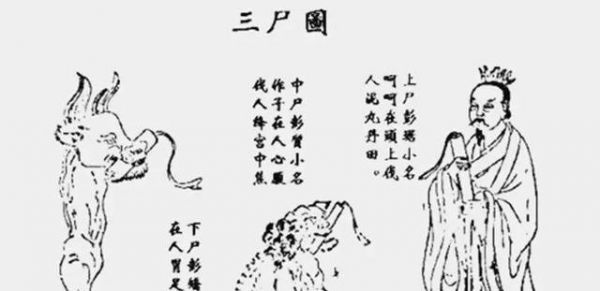 三尸圖
上尸彭琚小名
呵呵在頭上伐
人泥丸丹田。
中尸彭質小名
作子在人心腹
伐人絳宮中焦
下尸彭
在人胃足